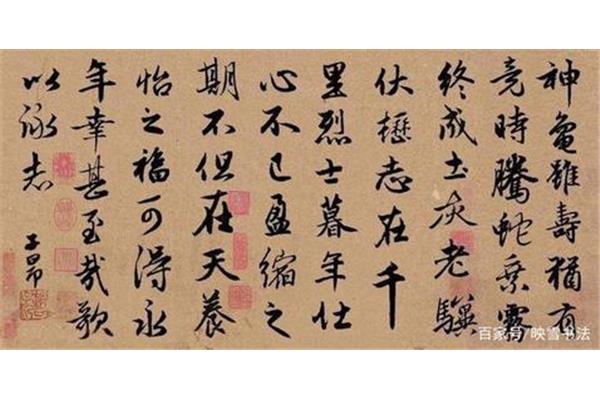 神龜雖壽猶有
竟時騰蛇乘霧
終成土灰老驥
伏櫪志在千
里烈士暮年壯
心不已盈縮之
期不但在天養
怡之福可得永
年幸甚至哉歌
以詠志
子昂
百家号/映雪书法